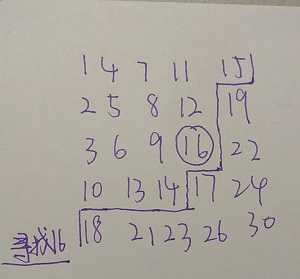 1 4 7 11 15
2 5 8 12 19
3 6 9 16 22
10 13 14 17 24
18 21 23 26 30
寻找16